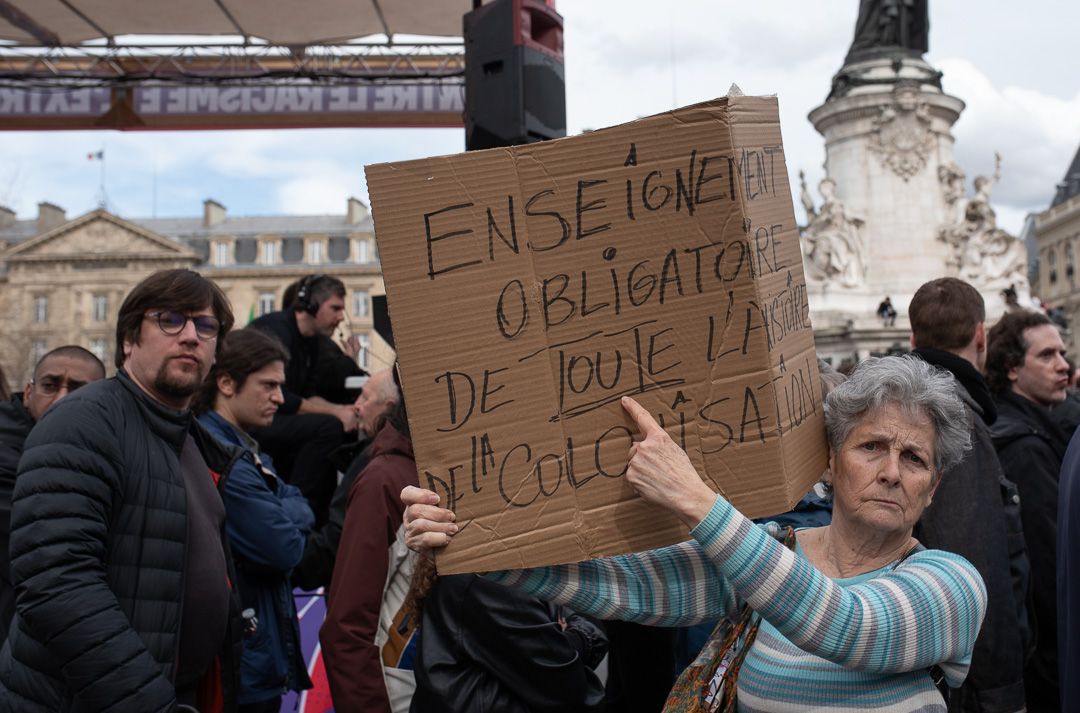 NTRE LE RACISME E L'EXTR
ENSEIGNEMENT
OBLIGATOIRE
DE TOUTE L'HISTOIRE
DE LA COLONISATION